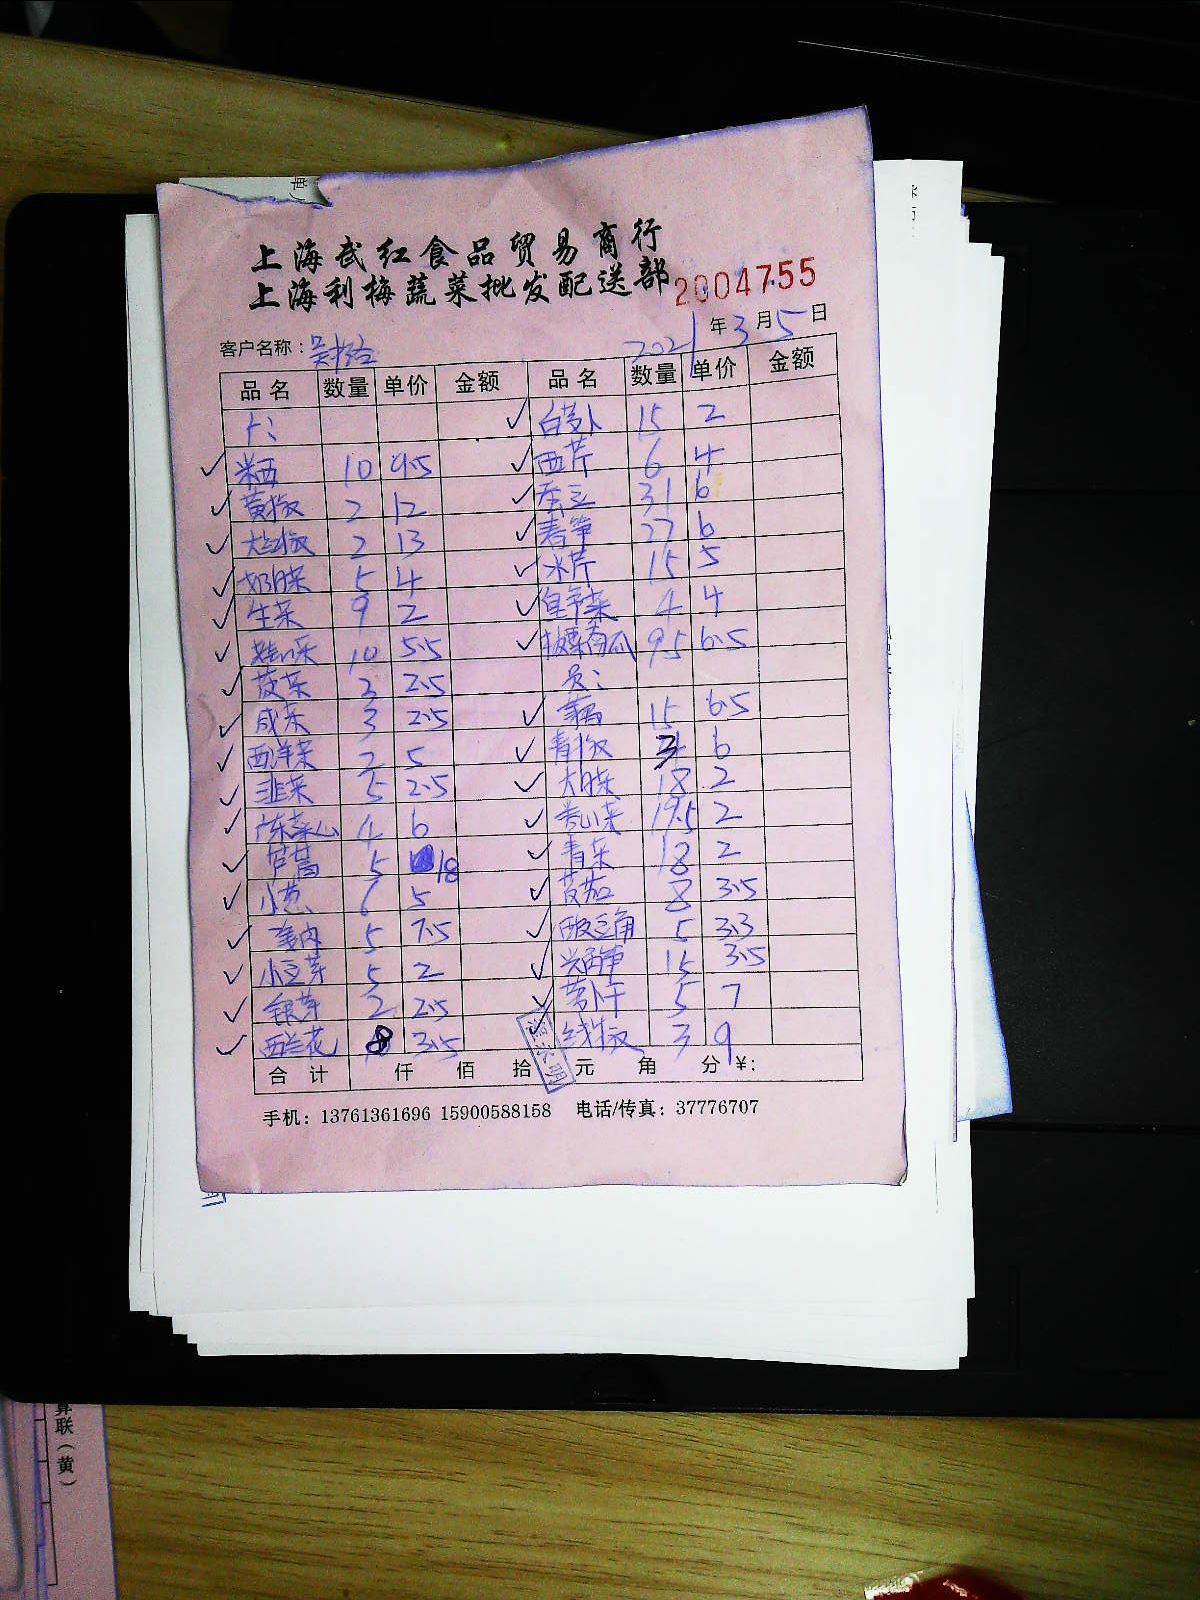 上海武红食品贸易商行
上海利梅蔬菜批发配送部 2004755
客户名称: 2021年3月5日
品名 数量 单价 金额 品名 数量 单价 金额
白萝卜 15 2
10 9.5 西芹 6 4
黄椒 2 12 31 6
大红椒 2 13 春笋 27 6
奶白菜 5 4 水芹 15 5
生菜 9 2 4 4
娃娃菜 10 5.5 板栗南瓜 9.5 6.5
3 2.5 员:
3 2.5 藕 15 6.5
西洋菜 2 5 青椒 3 6
韭菜 5 2.5 大白菜 18 2
广东菜心 4 6 卷心菜 19.5 2
芦蒿 5 18 青菜 18 2
小葱 6 5 8 3.5
5 7.5 酸豆角 5 3.3
小豆芽 5 2 15 3.5
银芽 2 2.5 萝卜干 5 7
西兰花 8 3.5 尖椒 3 9
合计 仟 佰 拾 元 角 分 ¥:
手机: 13761361696 15900588158 电话/传真: 37776707
算联(黄)